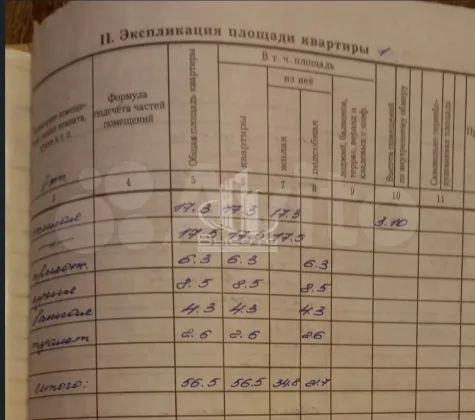 II. Экспликация площади квартиры 1
Формула подсчёта частей помещений
Общая площадь квартиры
В т. ч. площадь
квартиры
из неё
жилая
подсобная
лоджий, балконов, террас, веранд и кладовых с коэф.
Высота помещений по внутреннему обмеру
площадь
3 4 5 6 7 8 9 10 11
17.3 17.3 17.3 3.10
17.5 17.5 17.5
6.3 6.3 6.3
кухня 8.5 8.5 8.5
4.3 4.3 4.3
туалет 2.6 2.6 2.6
Итого: 56.5 56.5 34.8 21.7